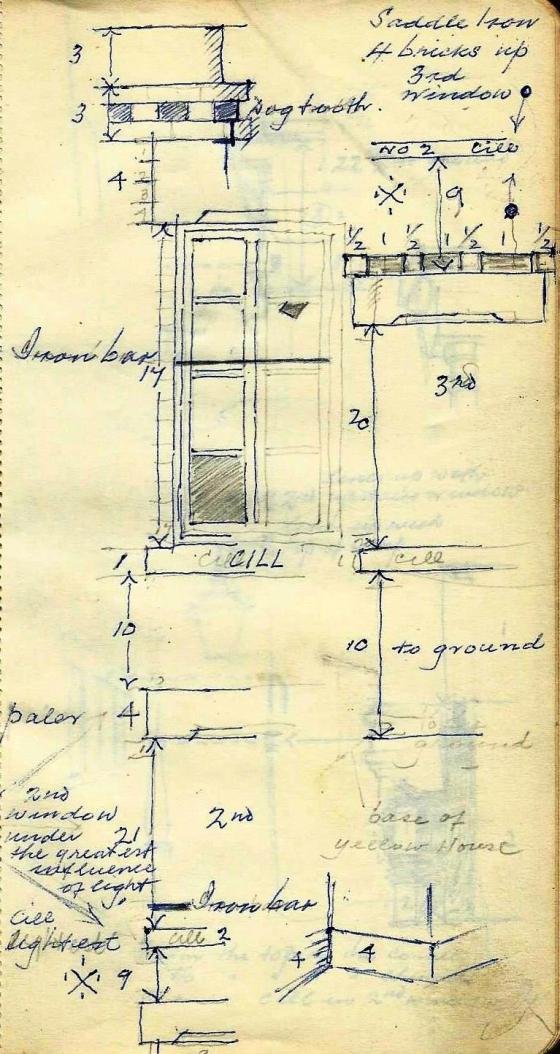 Saddle Iron
4 bricks up
3rd
window
3
3
Dogtooth.
4
1
2
3
4
No 2 Cill
9
1/2 1 1/2 1 1/2 1 1/2
Iron bar
17
20
3rd
1
CILL
11
Cill
10
10 to ground
paler 4
2nd
window
under 21
the greatest
influence
of light
2nd
base of
yellow House
ground
Iron bar
Cill
lightest
Cill 2
9
4
4